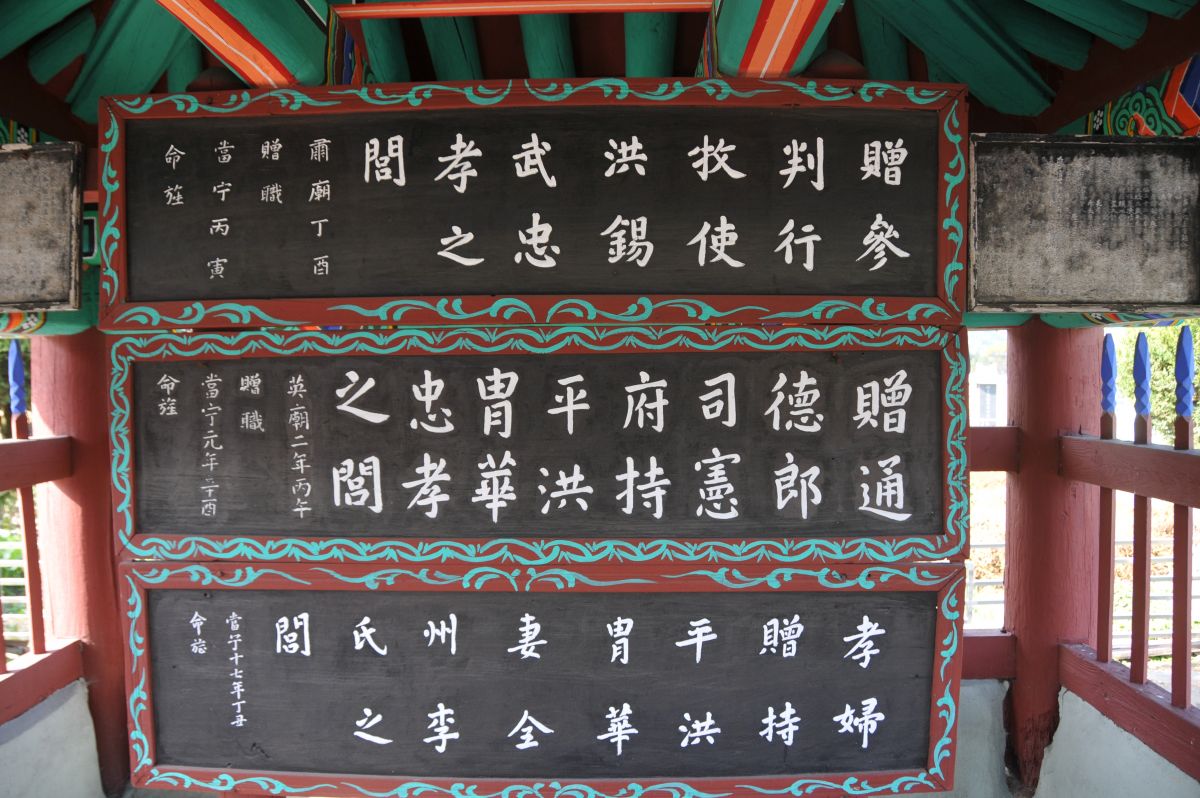 贈參
判行
牧使
洪錫
武忠
孝之
閭
肅廟丁酉
贈職
當宁丙寅
命旌
贈通
德郎
司憲
府持
平洪
胄華
忠孝
之閭
英廟二年丙午
贈職
當宁元年辛酉
命旌
孝婦
贈持
平洪
胄華
妻全
州李
氏之
閭
當宁十七年丁丑
命旌